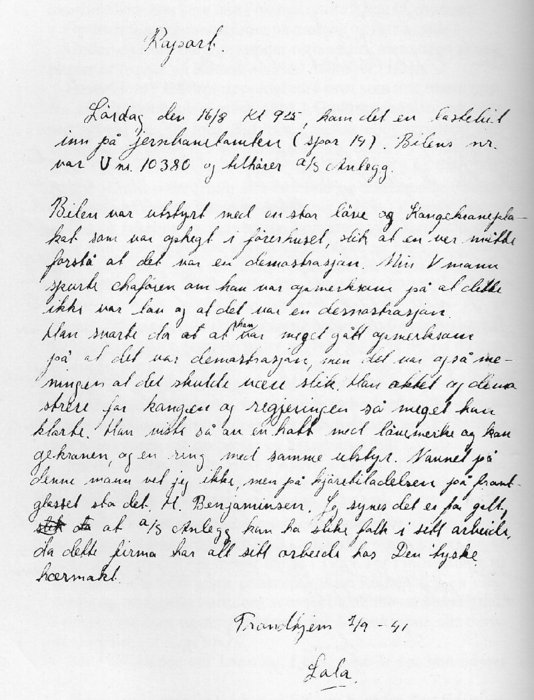 Raport.
Lördag den 16/8 Kl 9 15, kom det en lastebil
inn på jernbanetomten (spor 14). Bilens nr.
var U nr. 10380 og tilhörer a/s Anlegg.
Bilen var utstyrt med en stor löve og Kongekronepla-
kat som var ophegt i förerhuset, slik at en ver måtte
forstå at det var en demostrasjon. Min V mann
spurte chaufören om han var opmerksom på at dette
ikke var lov og at det var en demostrasjon.
Han svarte da at at han var meget gått opmerksom
på at det var demostrasjon, men det var også me-
ningen at det skulde være slik. Han aktet og demo
strere for kongen og regjeringen så meget han
klarte. Han viste så en hatt med lövemerke og kon
gekronen, og en ring med samme utstyr. Navnet på
denne mann vet jeg ikke, men på kjöretiladelsen på front-
glasset sto det. H. Benjaminsen. Jeg synes det er for galt,
at a/s Anlegg kan ha slike folk i sitt arbeide,
da dette firma har alt sitt arbeide hos Den tyske
hærmakt.
Trondhjem 1/9 - 41
Lola.